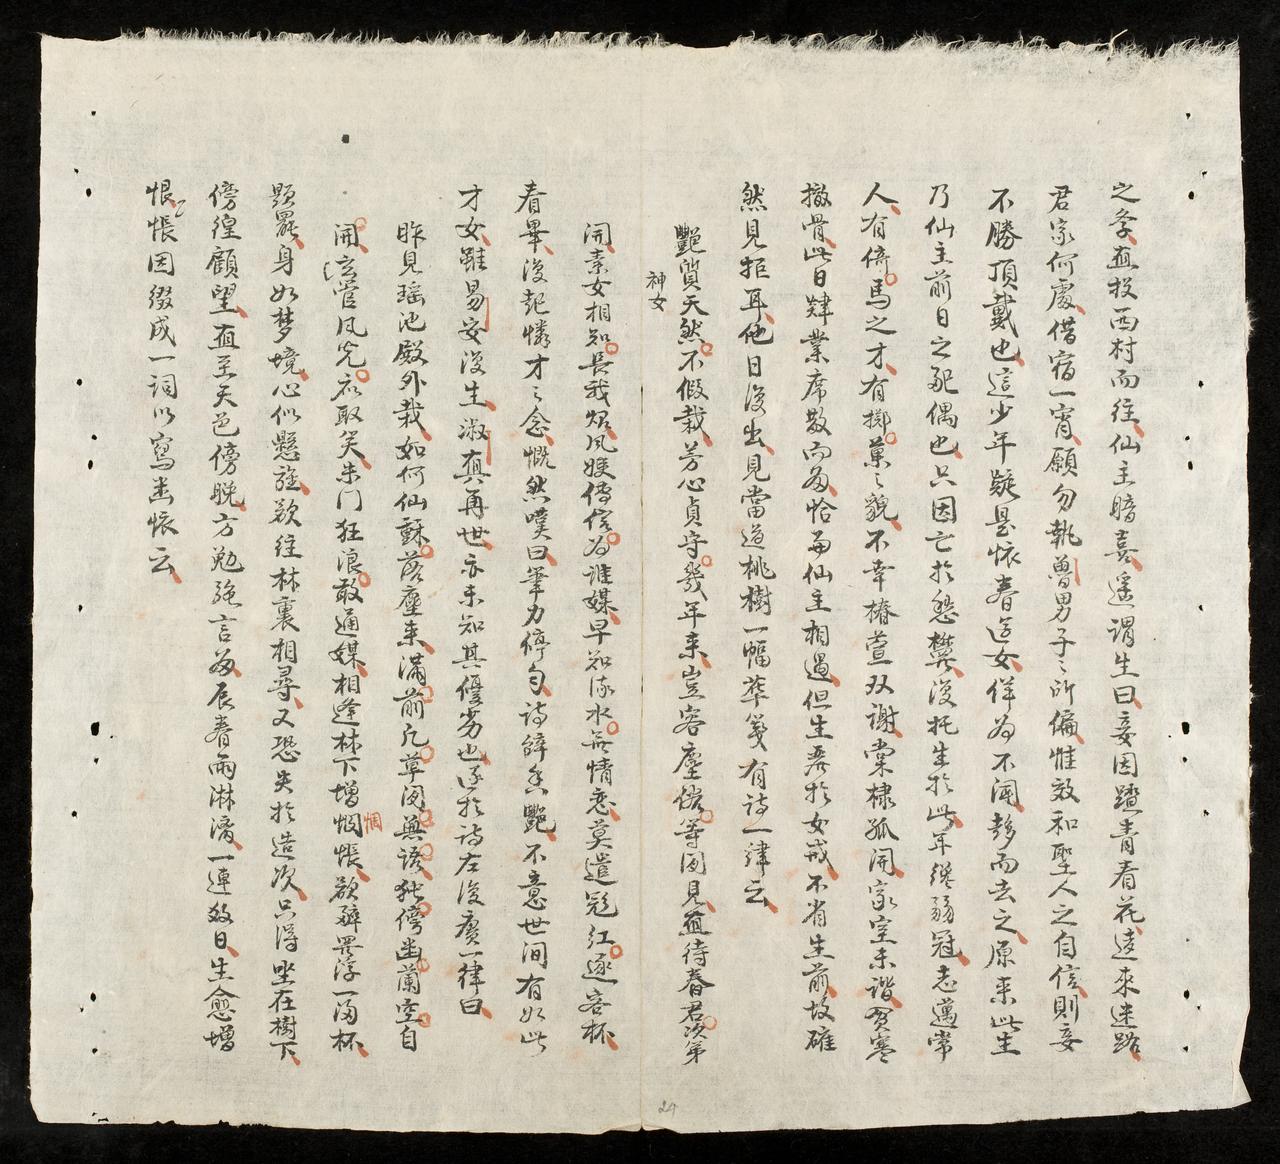 之季直投西村而往仙主暗喜遥謂生曰妾因踏青春花遠來迷路
君家何處借宿一宵願勿執魯男子之所偏惟效和聖人之自信則妾
不勝頂戴也這少年疑是怀春逰女佯為不聞趍而去之原來此生
乃仙主前日之配偶也只因亡於愁欝復托生於此年纔弱冠志邁常
人有倚馬之才有擲菓之貌不幸椿萱双謝棠棣孤開家室未諧貫寒
撤骨此日肄業席散而歸恰與仙主相遇但生昏於女戒不省生前故確
然見拒耳他日復出見當道桃樹一幅華箋有詩一律云
艷質天然不假栽芳心貞守幾年来豈容塵俗等閒見直待春君次第
神女
開素女相知長我炤風媒傳信為誰媒早知流水無情恋莫遣冠紅逐客杯
看畢復起憐才之念慨然嘆曰筆力停匀詩辭香艷不意世间有如此
才女雖易安復生淑真再世亦未知其優劣也遂於詩左復賡一律曰
昨見瑶池殿外栽如何仙蘇落塵来滿前凡草閒無语独傍幽蘭空自
開泫管風光应取笑朱门狂浪敢通媒相逢林下增惆惆悵欲醉眾浮一滿杯
題罷身如梦境心似懸旌欲往林裏相尋又恐失於造次只得坐在樹下
傍徨顧望直至天色傍晚方勉强言歸辰春雨淋漓一連数日生愈增
恨悵因綴成一詞以寫幽怀云